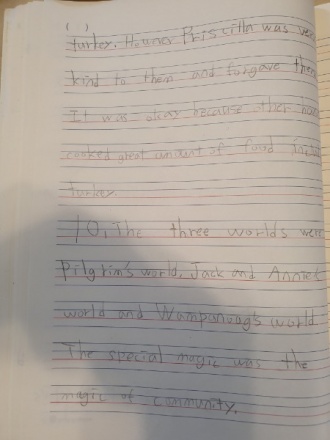 ( )
turkey. Priscilla was ver
kind to them and forgave them
It was okay because other
cooked great amount of food
turkey.
10, The three worlds wer
Pilgrim's world, Jack and Annie's
world and Wampanoag's world
The special magic was the
magic of community.